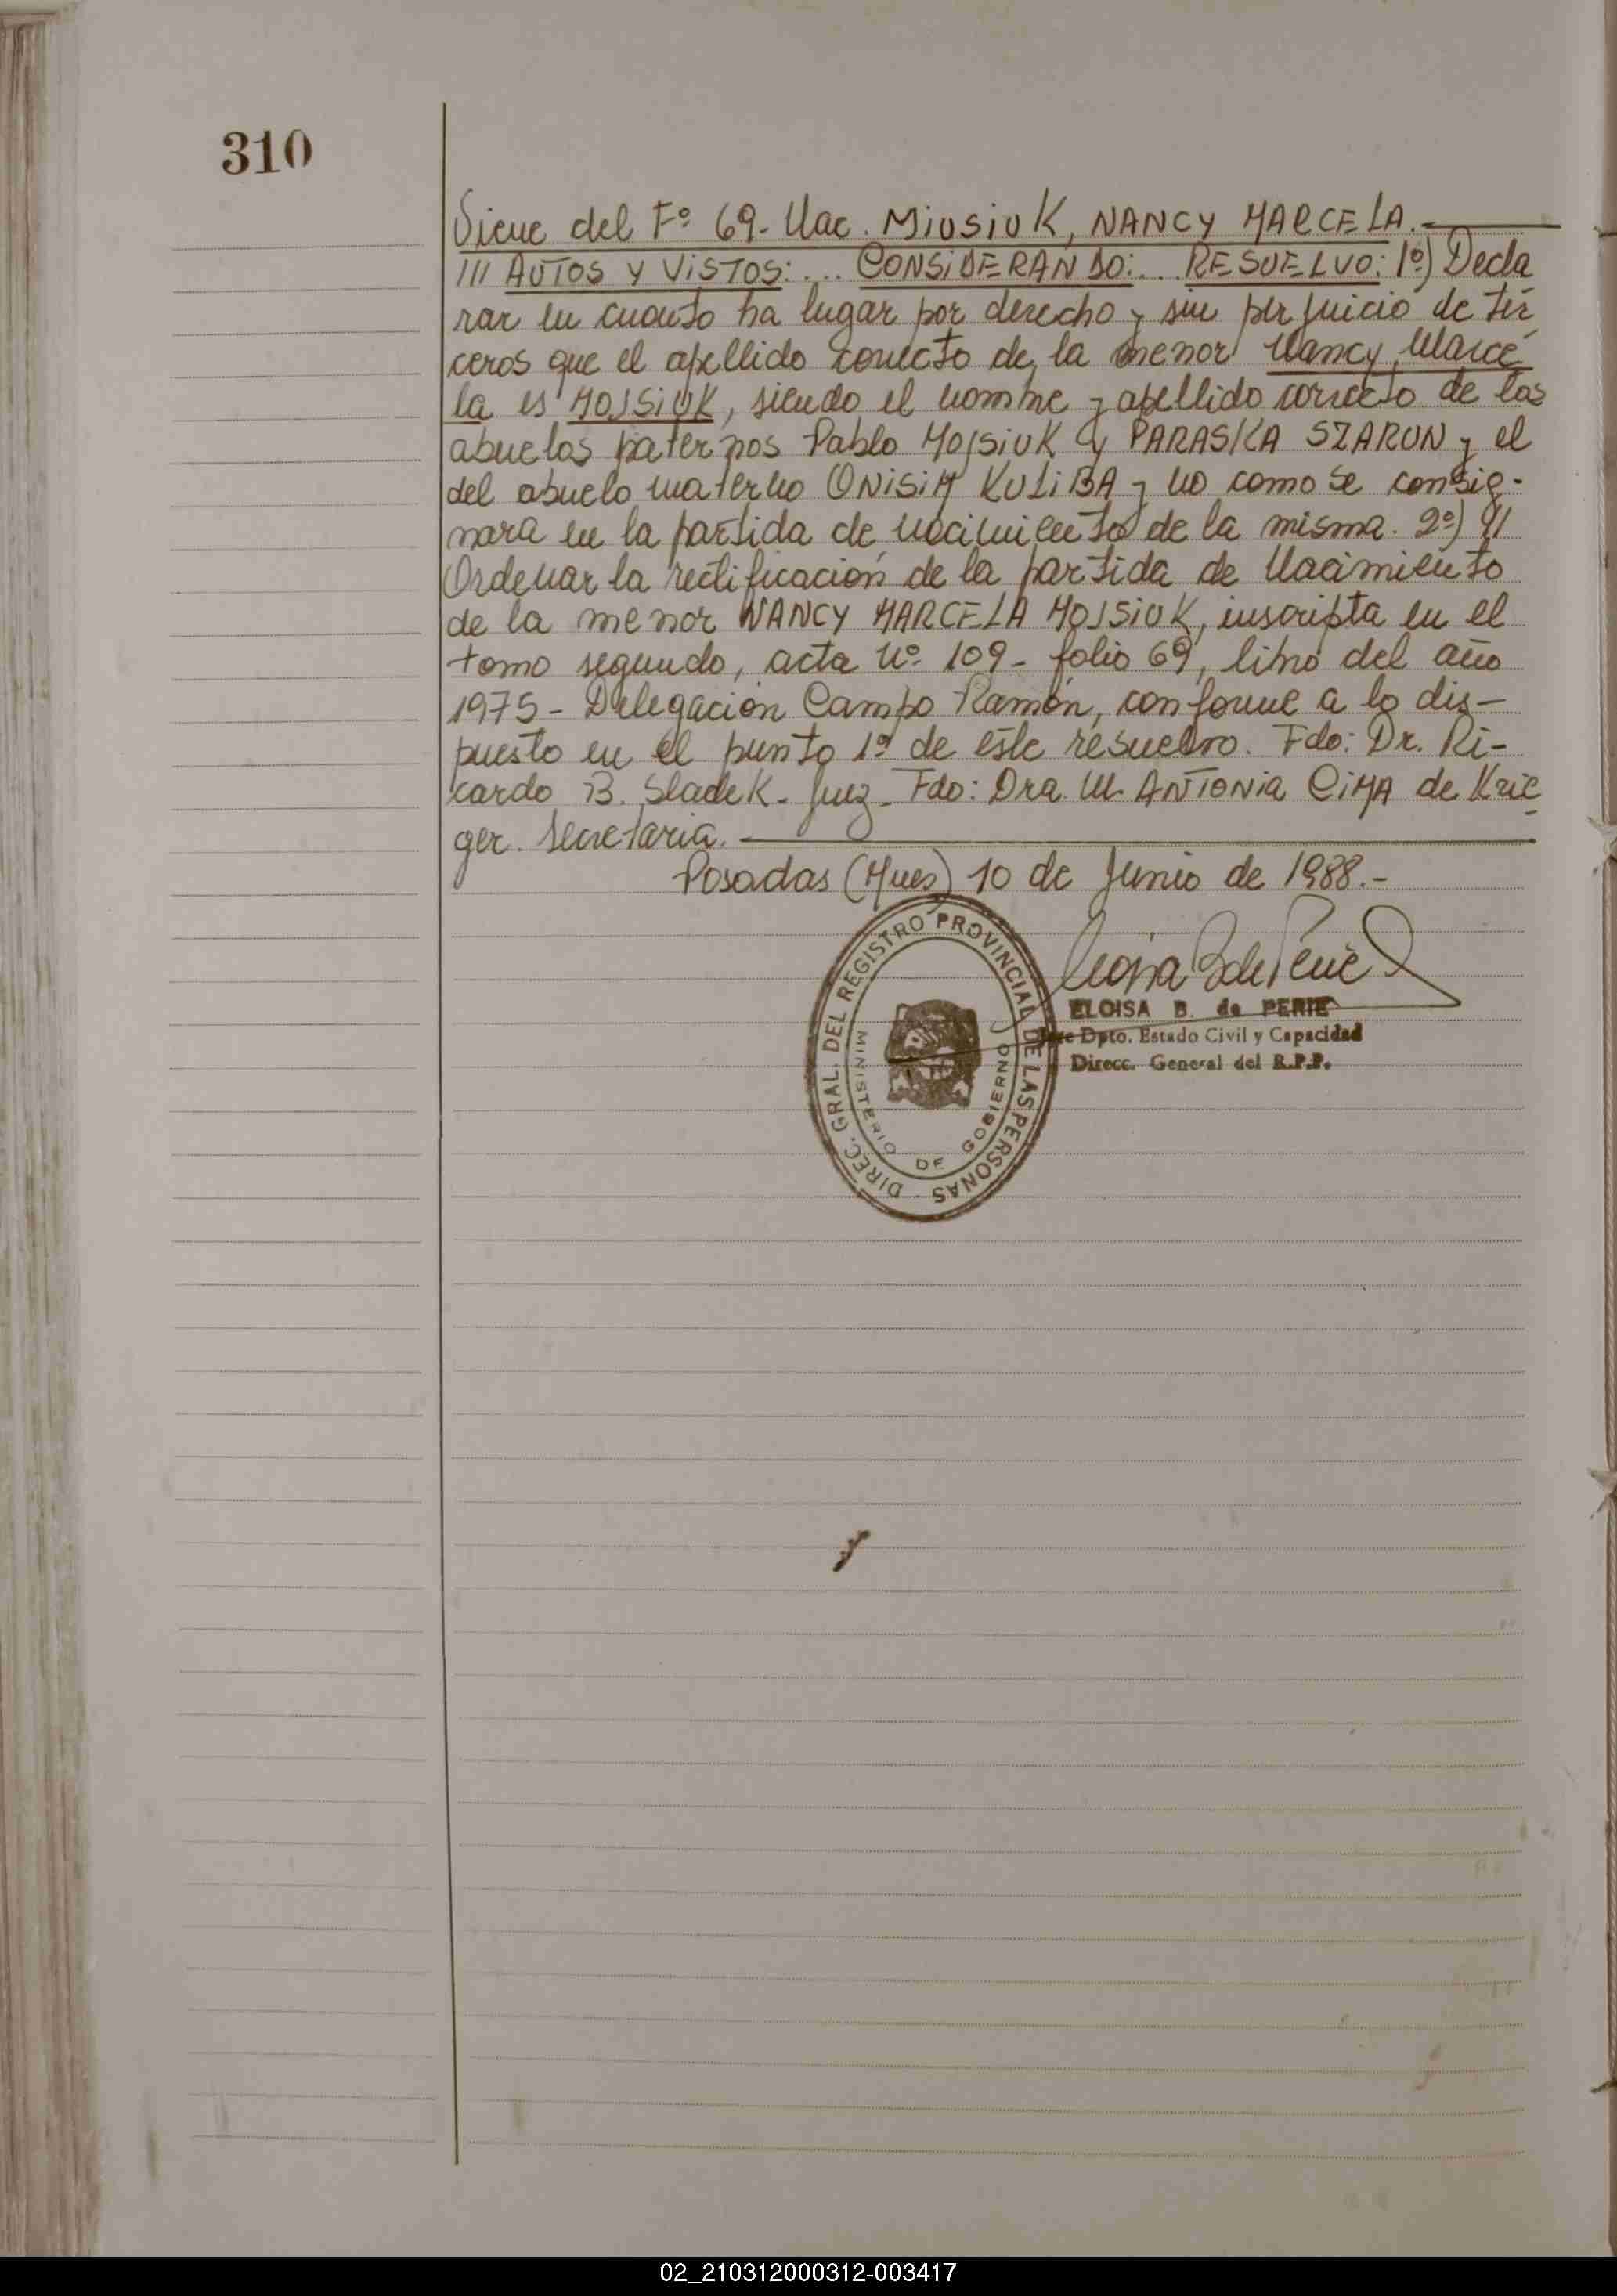 310
Viene del Fº 69- Nac. MiUSiUK, NANCY MARCELA.-
/// AUTOS Y ViSTOS: ... CONSiDERANDO: ... RESUELVO: 1º) Decla
rar en cuanto ha lugar por derecho y sin perjuicio de ter
ceros que el apellido correcto de la menor Nancy Marce
la es MOJSiUK, siendo el nombre y apellido correcto de los
abuelos paternos Pablo MOJSiUK y PARASKA SZARUN y el
del abuelo materno ONiSiM KULiBA y no como se consig-
nara en la partida de nacimiento de la misma. 2º)
Ordenar la rectificación de la partida de Nacimiento
de la menor NANCY MARCELA MOJSiUK, inscripta en el
tomo segundo, acta Nº 109- folio 69, libro del año
1975- Delegación Campo Ramón, conforme a lo dis-
puesto en el punto 1º de este resuelvo. Fdo: Dr. Ri-
cardo B. Sladek- Juez- Fdo: Dra. M. ANTONiA CiMA de Krie
ger. Secretaria.
Posadas (Mnes) 10 de Junio de 1988.-
DIREC. GRAL. DEL REGISTRO PROVINCIAL DE LAS PERSONAS
MINISTERIO DE GOBIERNO
ELOISA B. de PERIE
Jefe Dpto. Estado Civil y Capacidad
Direcc. General del R.P.P.
02_210312000312-003417